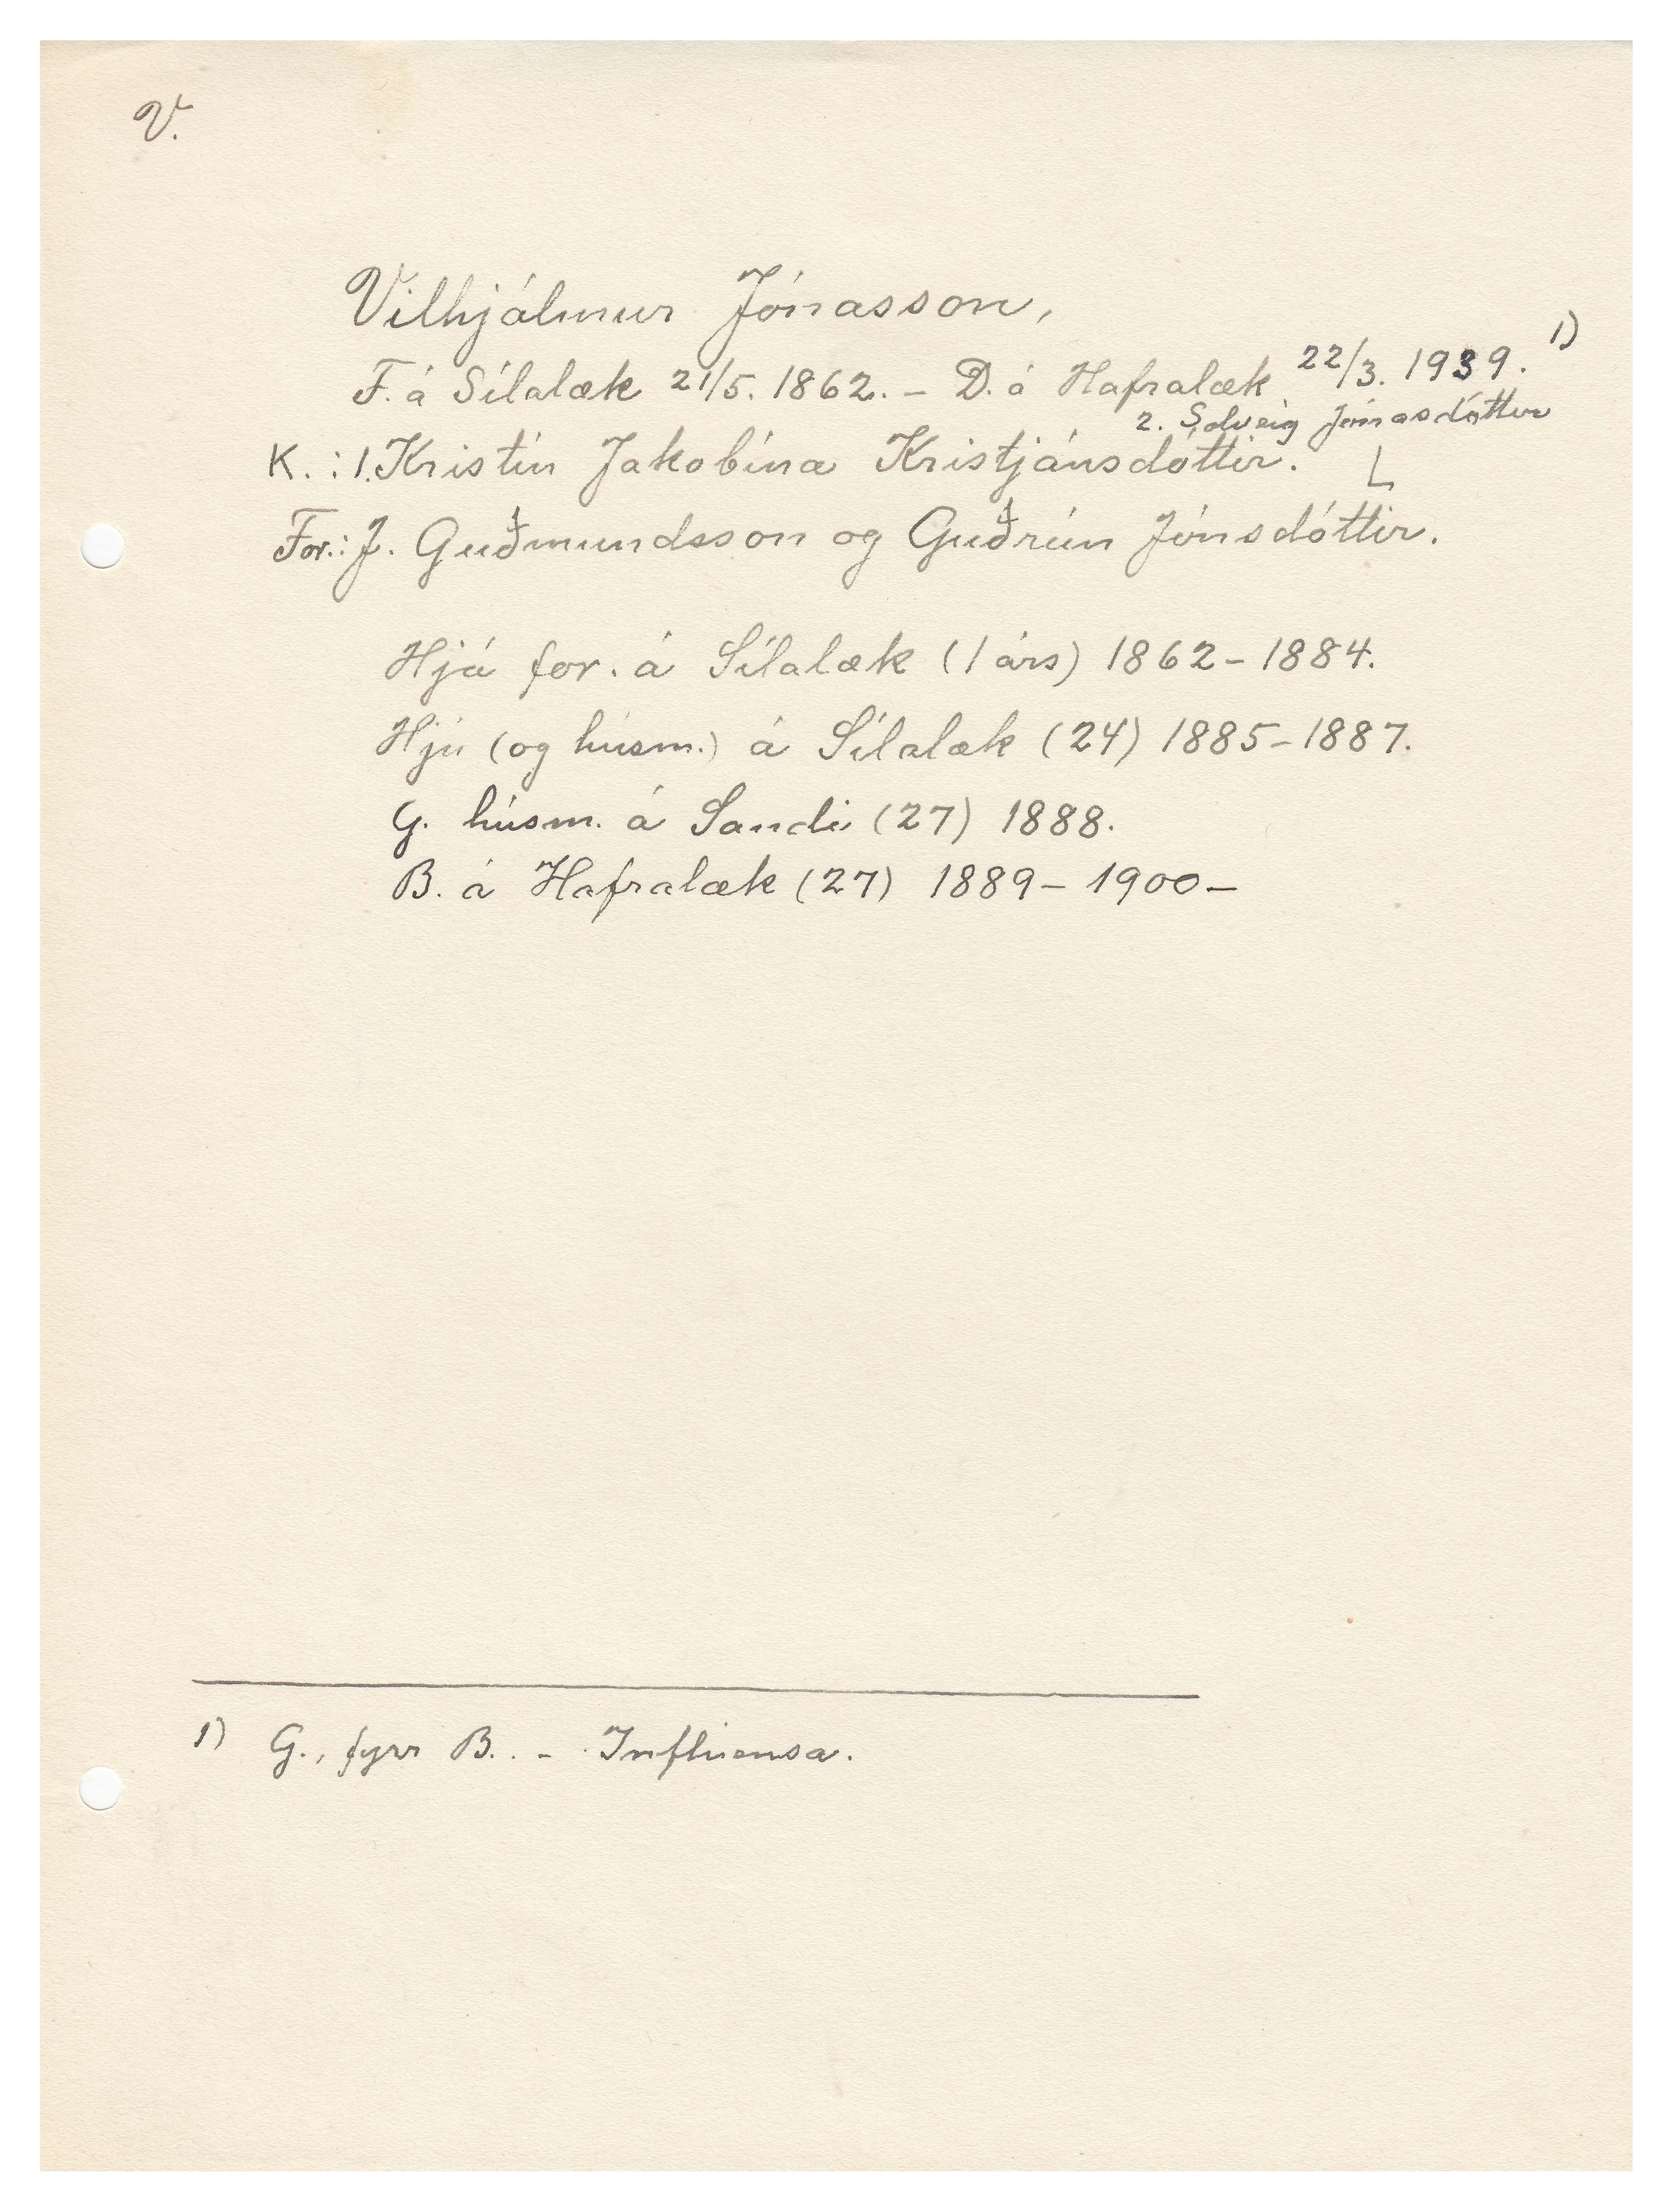 V.
Vilhjálmur Jónasson,
F. á Sílalæk 21/5. 1862. – D. á Hafralæk 22/3. 1939. 1)
2. Sólveig Jónasdóttir
K.: 1. Kristín Jakobína Kristjánsdóttir. L
For.: J. Guðmundsson og Guðrún Jónsdóttir.
Hjá for. á Sílalæk (1 árs) 1862 – 1884.
Hjú (og húsm.) á Sílalæk (24) 1885 – 1887.
G. húsm. á Sandi (27) 1888.
B. á Hafralæk (27) 1889 – 1900 –
1) G., fyrr B. – Influensa.